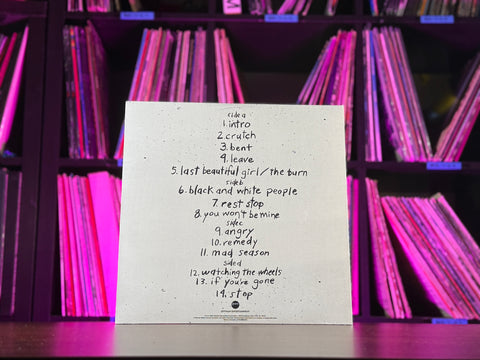 side a
1. intro
2. crutch
3. bent
4. leave
5. last beautiful girl/the burn
side b
6. black and white people
7. rest stop
8. you won't be mine
side c
9. angry
10. remedy
11. mad season
side d
12. watching the wheels
13. if you're gone
14. stop